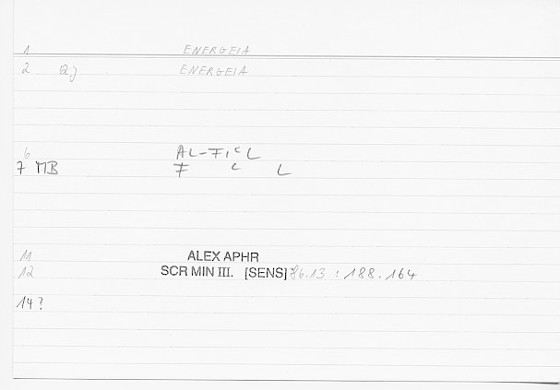 1 ENERGEIA
2 Qj ENERGEIA
6 AL-FIᶜL
7 MB F ᶜ L
11 ALEX APHR
12 SCR MIN III. [SENS] 86.13 : 188.164
14?